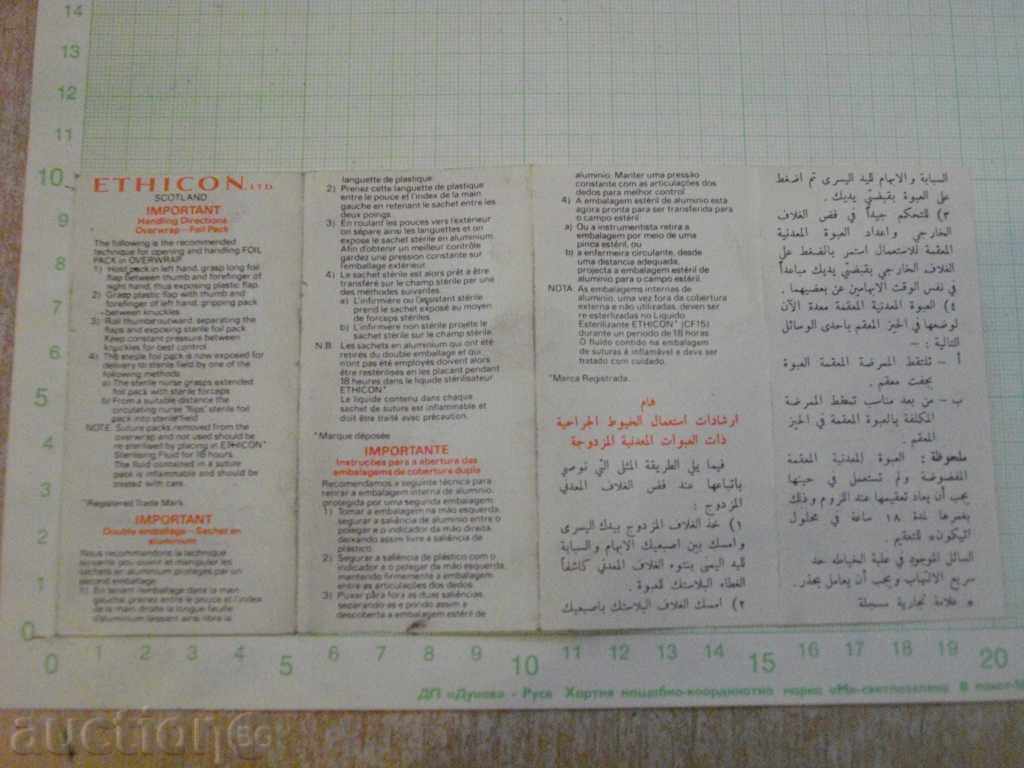 ETHICON LTD.
SCOTLAND
IMPORTANT
Handling Directions
Overwrap – Foil Pack
The following is the recommended
technique for opening and handling FOIL
PACK in OVERWRAP
1) Hold pack in left hand, grasp long foil
flap between thumb and forefinger of
right hand, thus exposing plastic flap.
2) Grasp plastic flap with thumb and
forefinger of left hand, gripping pack
between knuckles
3) Roll thumbs outward, separating the
flaps and exposing sterile foil pack
Keep constant pressure between
knuckles for best control
4) The sterile foil pack is now exposed for
delivery to sterile field by one of the
following methods
a) The sterile nurse grasps extended
foil pack with sterile forceps
b) From a suitable distance the
circulating nurse 'flips' sterile foil
pack into sterile field
NOTE. Suture packs removed from the
overwrap and not used should be
re-sterilised by placing in ETHICON*
Sterilising Fluid for 18 hours.
The fluid contained in a suture
pack is inflammable and should be
treated with care.
*Registered Trade Mark.
IMPORTANT
Double emballage – Sachet en
aluminium
Nous recommandons la technique
suivante pour ouvrir et manipuler les
sachets en aluminium protégés par un
second emballage.
1) En tenant l'emballage dans la main
gauche, prenez entre le pouce et l'index
de la main droite la longue feuille
d'aluminium laissant ainsi libre la
languette de plastique.
2) Prenez cette languette de plastique
entre le pouce et l'index de la main
gauche en retenant le sachet entre les
deux poings.
3) En roulant les pouces vers l'extérieur
on sépare ainsi les languettes et on
expose le sachet stérile en aluminium.
Afin d'obtenir un meilleur contrôle
gardez une pression constante sur
l'emballage extérieur.
4) Le sachet stérile est alors prêt à être
transféré sur le champ stérile par une
des méthodes suivantes.
a) L'infirmière ou l'assistant stérile
prend le sachet exposé au moyen
de forceps stériles
b) L'infirmière non stérile projete le
sachet stérile sur le champ stérile.
N.B. Les sachets en aluminium qui ont été
retirés du double emballage et qui
n'ont pas été employés doivent alors
être restérilisés en les placant pendant
18 heures dans le liquide stérilisateur
ETHICON*
Le liquide contenu dans chaque
sachet de suture est inflammable et
doit être traité avec précaution.
*Marque déposée
IMPORTANTE
Instruções para a abertura das
embalagens de cobertura dupla
Recomendamos a seguinte técnica para
retirar a embalagem interna de alumínio,
protegida por uma segunda embalagem.
1) Tomar a embalagem na mão esquerda,
segurar a saliência de alumínio entre o
polegar e o indicador da mão direita,
deixando assim livre a saliência de
plástico.
2) Segurar a saliência de plástico com o
indicador e o polegar da mão esquerda,
mantendo firmemente a embalagem
entre as articulações dos dedos.
3) Puxar para fora as duas saliências,
separando-as e pondo assim a
descoberta a embalagem estéril de
alumínio. Manter uma pressão
constante com as articulações dos
dedos para melhor control
4) A embalagem estéril de alumínio esta
agora pronta para ser transferida para
o campo estéril
a) Ou a instrumentista retira a
embalagem por meio de uma
pinça estéril, ou
b) a enfermeira circulante, desde
uma distancia adequada,
projecta a embalagem estéril de
alumínio para o campo estéril.
NOTA: As embalagens internas de
alumínio, uma vez fora da cobertura
externa e não utilizadas, devem ser
re-esterlizadas no Líquido
Esterilizante ETHICON* (CF15)
durante um periodo de 18 horas.
O fluido contido na embalagem
de suturas é inflamável e deve ser
tratado com cuidado.
*Marca Registrada.
هام
ارشادات استعمال الخيوط الجراحية
ذات العبوات المعدنية المزدوجة
فيما يلي الطريقة المثلى التي نوصي
باتباعها عند فض الغلاف المعدني
المزدوج :
١) خذ الغلاف المزدوج بيدك اليسرى
وامسك بين اصبعيك الابهام والسبابة
لليد اليمنى بنتوء الغلاف المعدني كاشفاً
الغطاء البلاستك للعبوة .
٢) امسك الغلاف البلاستك باصبعيك
السبابة والابهام لليد اليسرى ثم اضغط
على العبوة بقبضتي يديك .
٣) للتحكم جيداً في فض الغلاف
الخارجي واعداد العبوة المعدنية
المعقمة للاستعمال استمر بالضغط على
الغلاف الخارجي بقبضتي يديك مباعداً
في نفس الوقت الابهامين عن بعضهما .
٤) العبوة المعدنية المعقمة معدة الآن
لوضعها في الحيز المعقم باحدى الوسائل
التالية : –
أ – تلتقط الممرضة المعقمة العبوة
بجفت معقم .
ب – من بعد مناسب تسقط الممرضة
المكلفة بالعبوة المعقمة في الحيز
المعقم .
ملحوظة : العبوة المعدنية المعقمة
المفضوضة ولم تستعمل في حينها
يجب أن يعاد تعقيمها عند اللزوم وذلك
بغمرها لمدة ١٨ ساعة في محلول
اثيكون* للتعقيم .
السائل الموجود في علبة الخياطه حد
سريع الالتهاب ويجب أن يعامل بحذر .
* علامة تجارية مسجلة
14
13
12
11
10
9
8
7
6
5
4
3
2
1
0
0 1 2 3 4 5 6 7 8 9 10 11 12 13 14 15 16 17 18 19 20
ДП «Дунав» - Русе Хартия мащабно-координатна марка «Мн-светлозелен»
auction BG